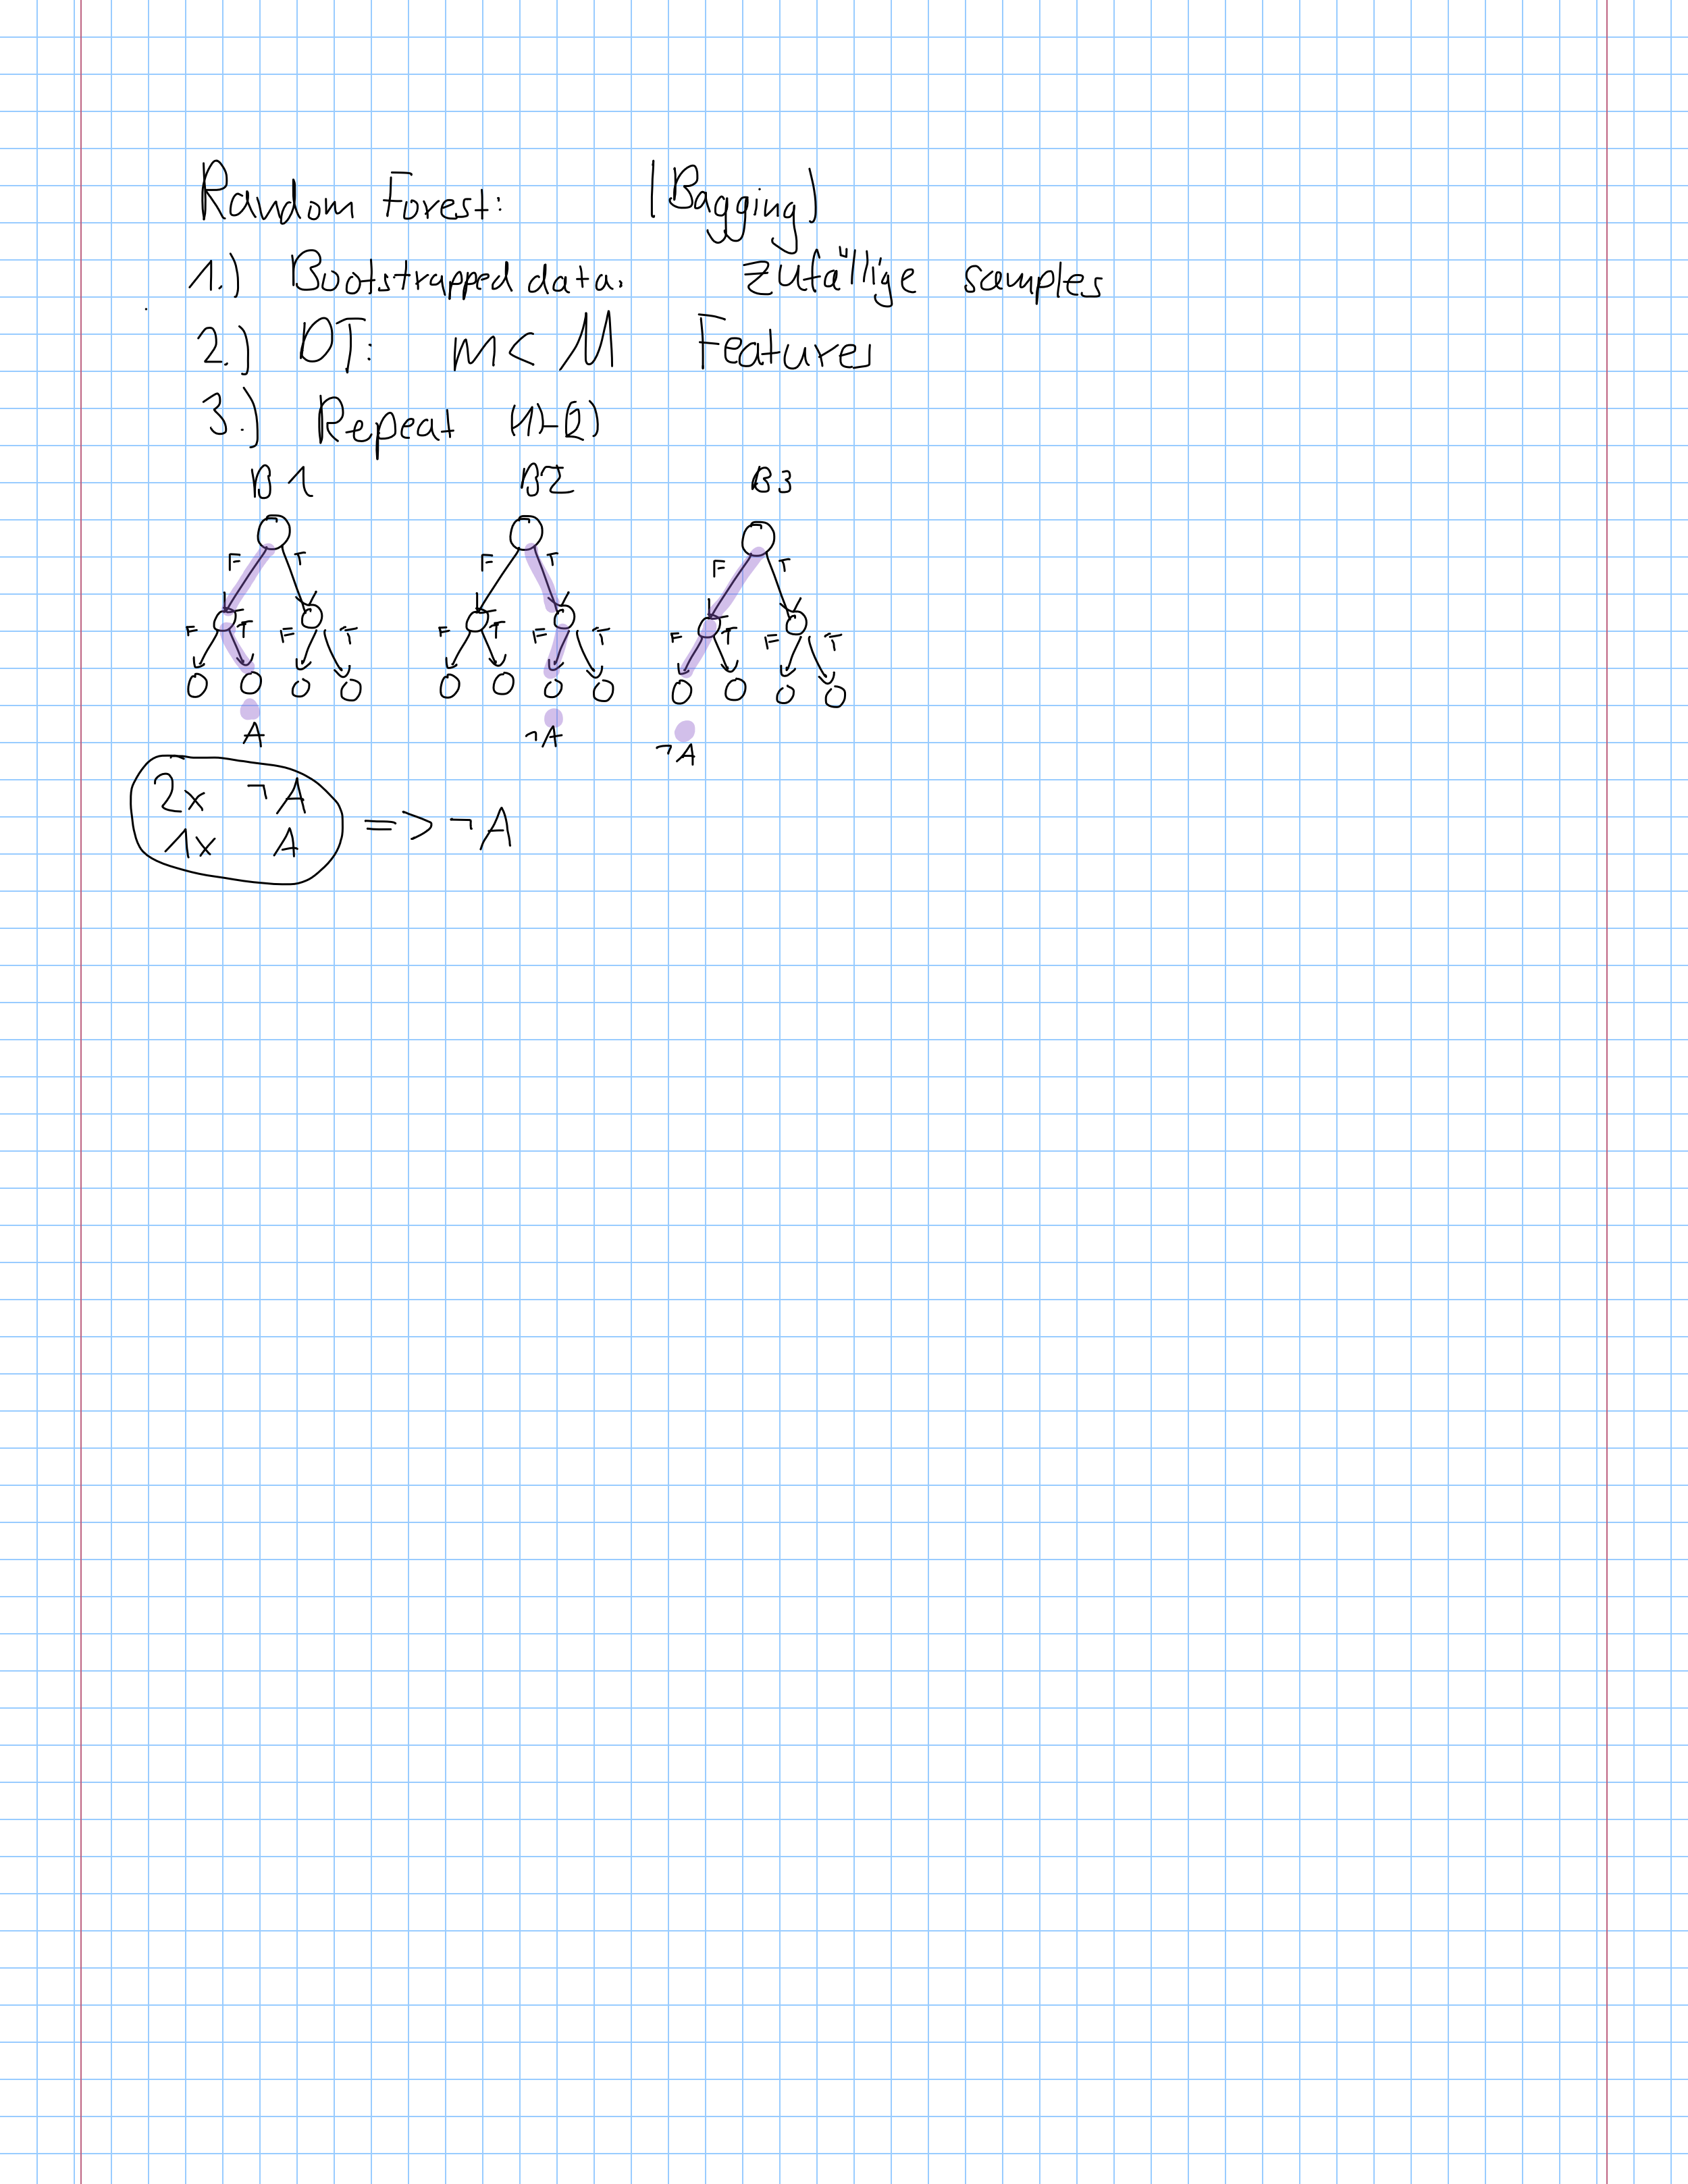 Random Forest: (Bagging)
1.) Bootstrapped data. zufällige samples
2.) DT: m < M Features
3.) Repeat (1)-(2)
B1 B2 B3
F T F T F T
F T F T F T F T F T F T
A ¬A ¬A
2x ¬A
1x A
=> ¬A